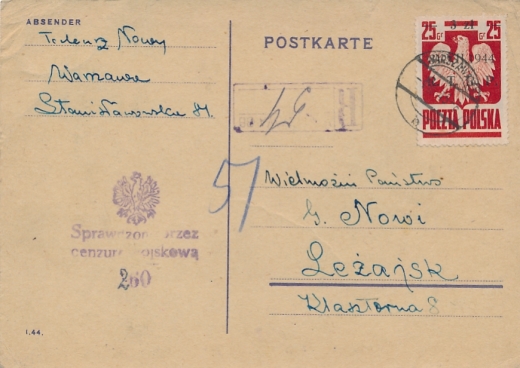 ABSENDER
Tadeusz Nowy
Warszawa
Stanisławowska
POSTKARTE
25 Gr 3 zł 25 Gr
1944
POCZTA POLSKA
57
Wielmożni Państwo
G. Nowi
Leżajsk
Klasztorna 8
Sprawdzono przez
cenzurę wojskową
260
I.44.